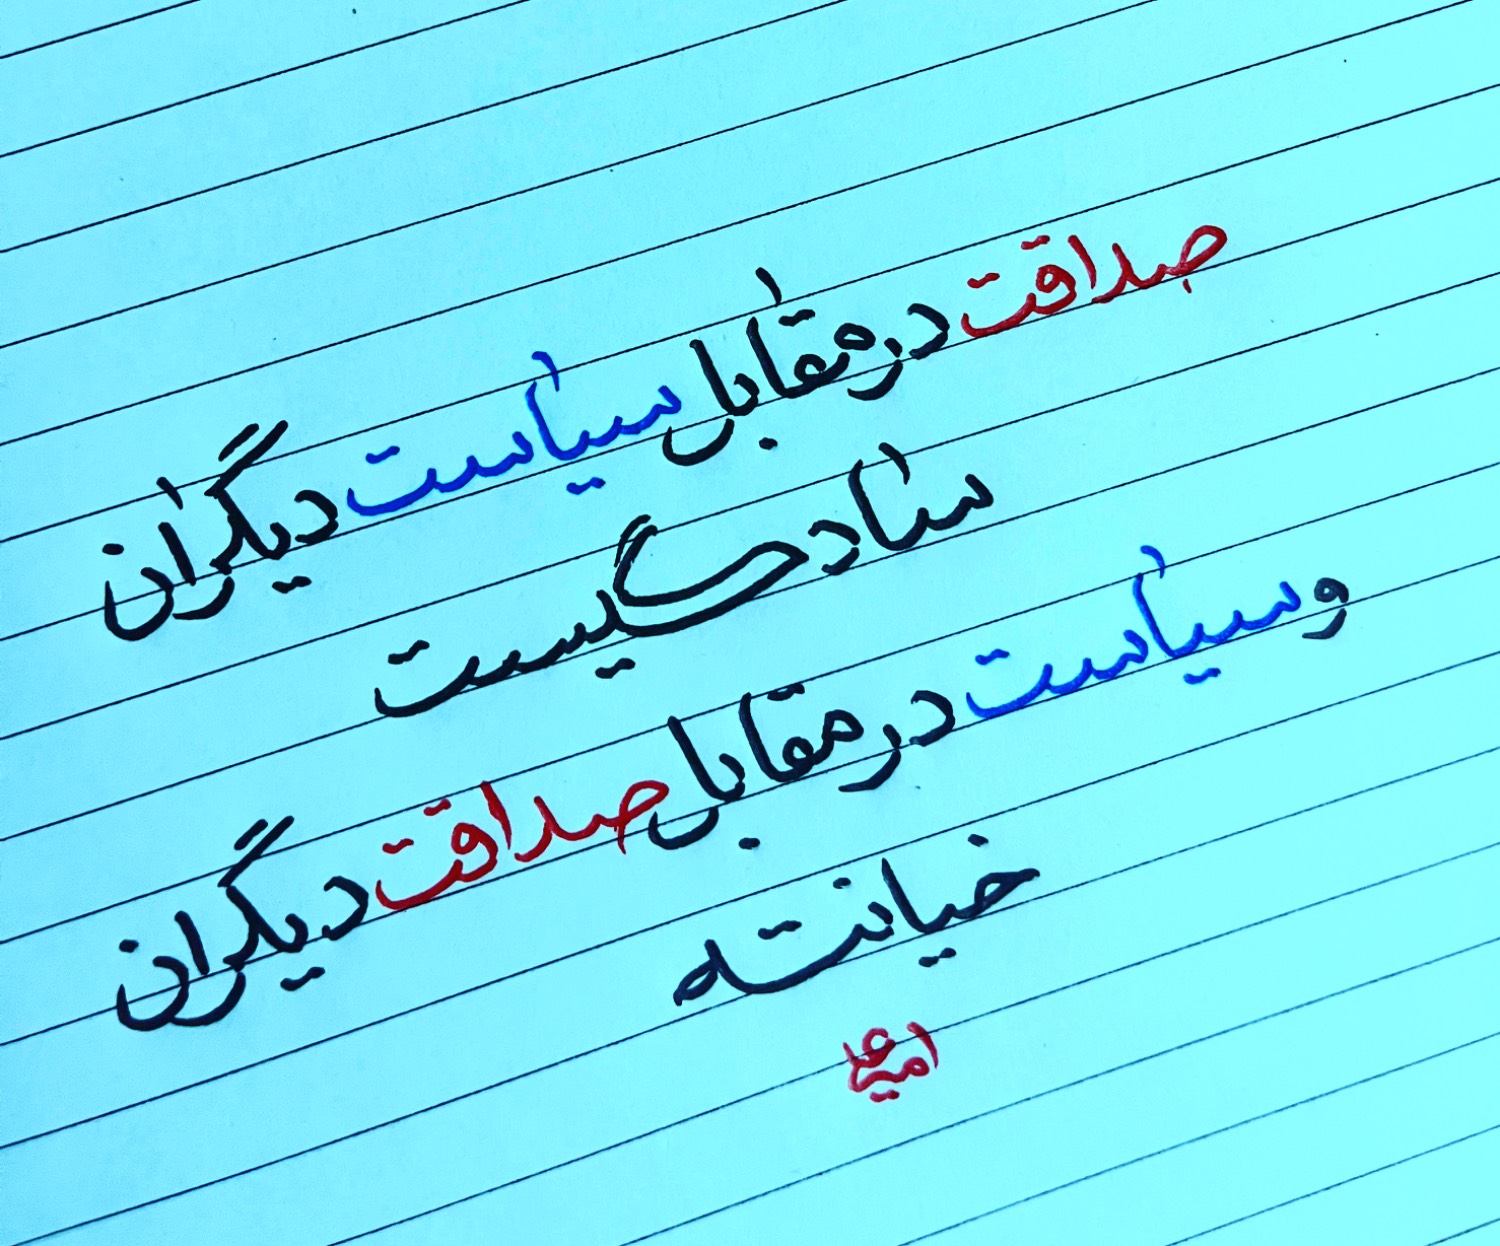 صداقت در مقابل سیاست دیگران
سادگیست
و سیاست در مقابل صداقت دیگران
خیانته